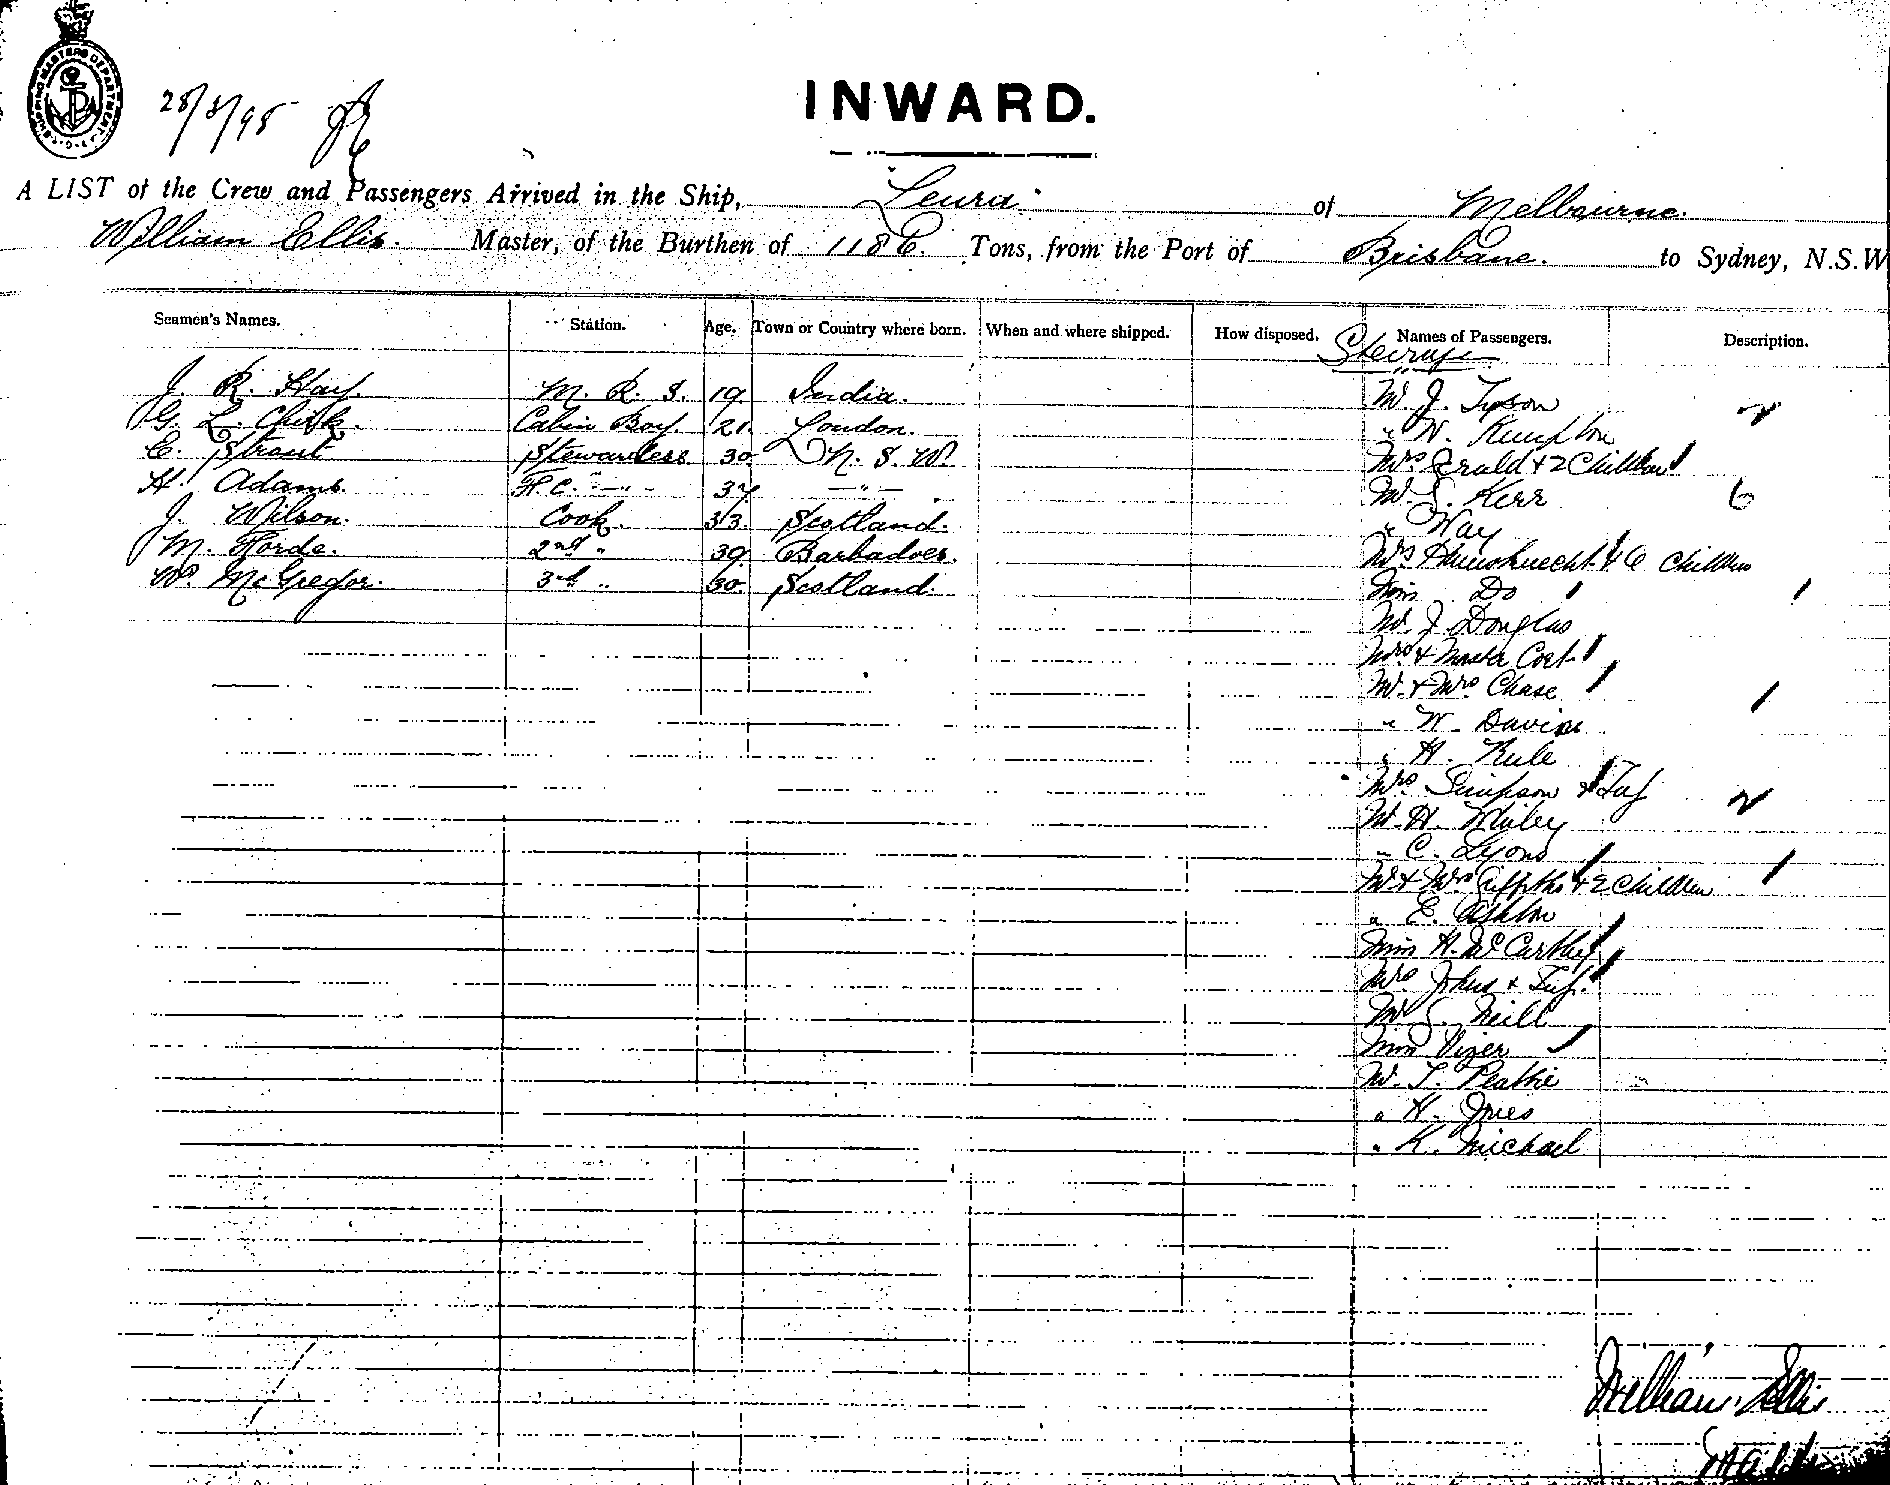 SHIPPING MASTERS DEPARTMENT
28/3/98
INWARD.
A LIST of the Crew and Passengers Arrived in the Ship, "Leura" of Melbourne.
William Ellis. Master, of the Burthen of 1186 Tons, from the Port of Brisbane. to Sydney, N.S.W
Seamen's Names. Station. Age. Town or Country where born. When and where shipped. How disposed. Names of Passengers. Description.
Steerage
J. R. Hay. M. R. S. 19 India. Mr J. Tyson
G. L. Cabin Boy. 21. London. " W. Kempton
C. Stewardess 30 N. S. W. Mrs & 2 Children
H. Adams. F.C. -"- 37 -"- Mr S. Kerr 6
J. Wilson. Cook. 33. Scotland. " Way
M. Forde. 2nd " 39 Barbadoes. Mrs & 6 Children
W. McGregor. 3rd " 30 Scotland. Miss Do
Mr J. Douglas
Mrs & Master
Mr & Mrs Chase
" W. Davies
" H. Rule
Mrs Simpson & Inf
Mr H.
" C. Lyons
Mr & Mrs Griffiths & 2 Children
" E. Ashton
Miss H. McCarthy
Mrs Johns & Inf.
Mr S. Neill
Miss Vizer
Mr T. Peattie
" H. Jones
" K. Michael
William Ellis